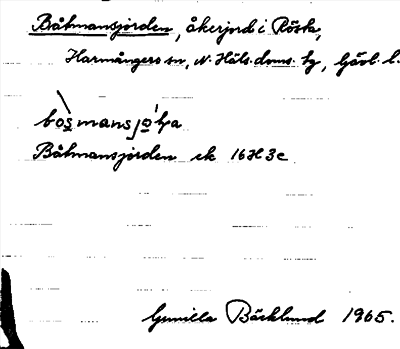 Båtmansjorden, åkerjord i Rösta,
Harmångers sn, N. Häls. doms. hg, Gävl. l.
bo̱s̱mansjo̱´ḷa
Båtmansjorden ek 16H3c
Gunilla Bäcklund 1965.